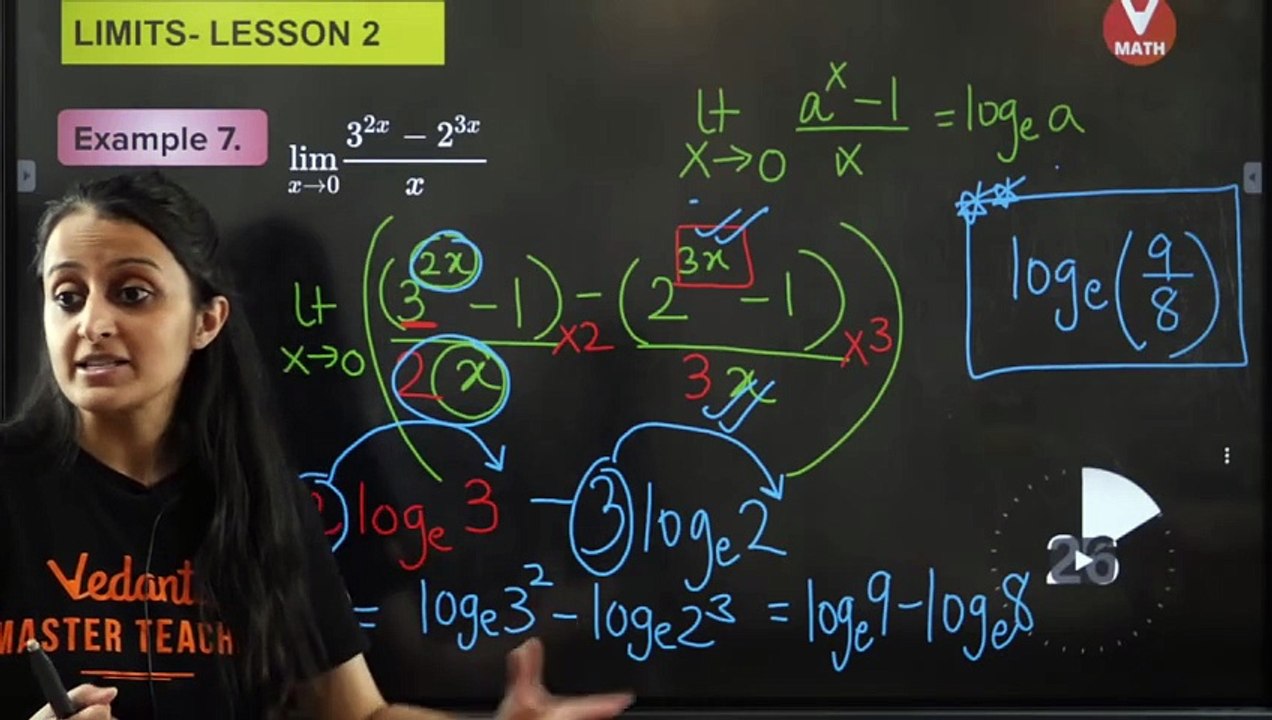 LIMITS- LESSON 2
V
MATH
Example 7. lim x→0 (3^{2x} − 2^{3x})/x
lt x→0 (a^x − 1)/x = log_e a
lt x→0 ((3^{2x} − 1)/(2(x)) ×2 − (2^{3x} − 1)/(3x) ×3)
log_e (9/8)
log_e 3 − 3 log_e 2
= log_e 3^2 − log_e 2^3 = log_e 9 − log_e 8
26
Vedant
MASTER TEACH